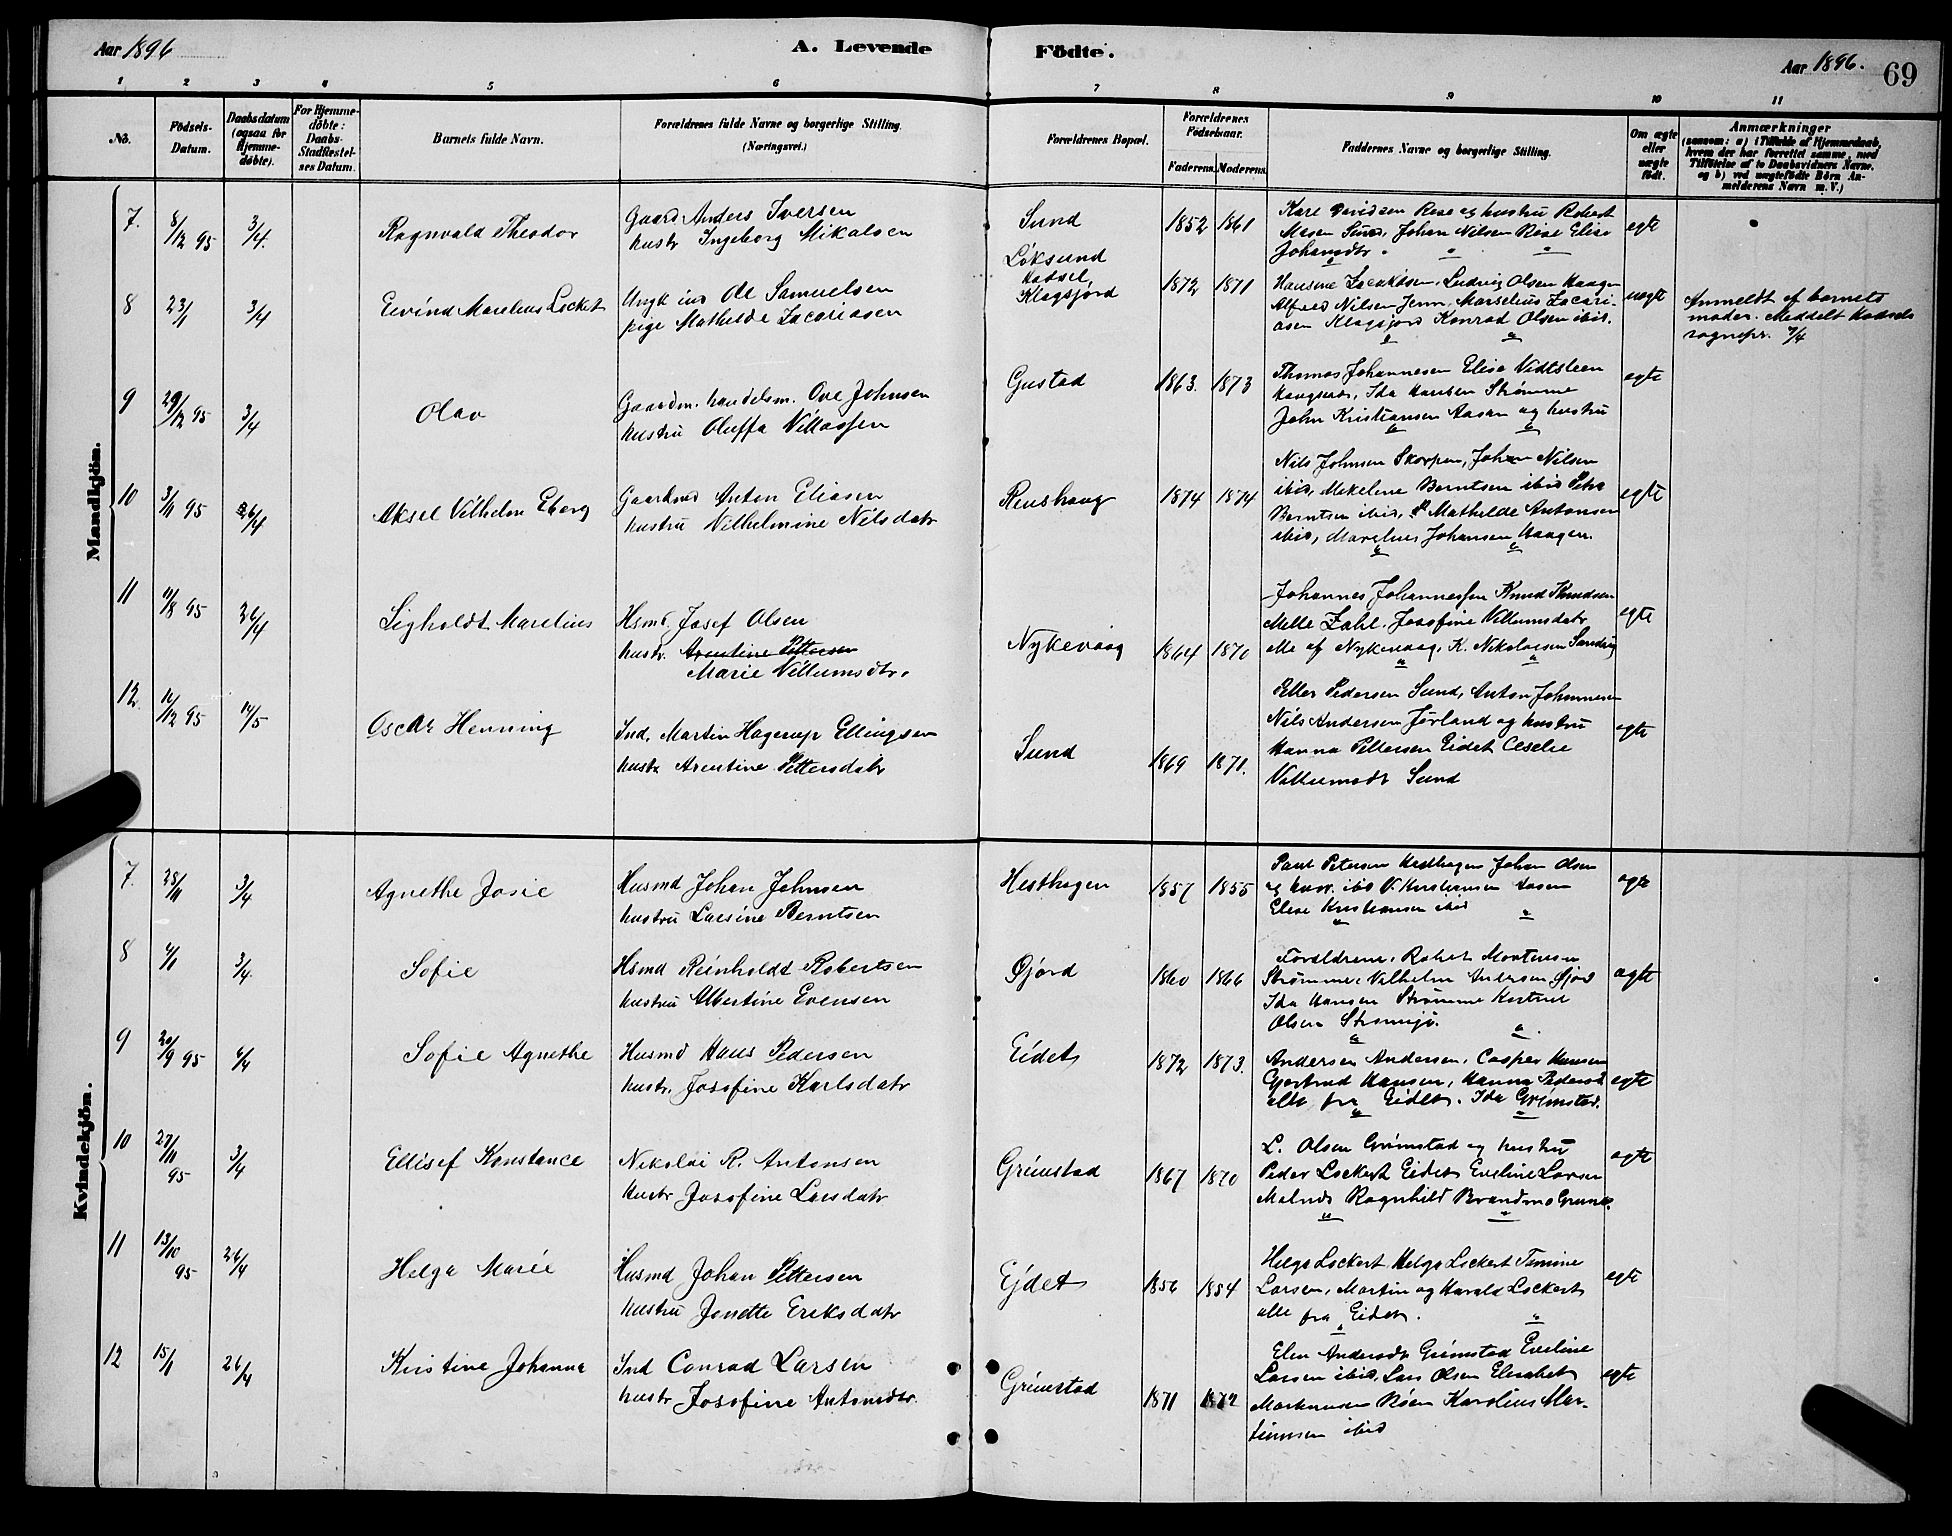 Aar 1896
A. Levende
Födte.
Aar 1896.
69
1 2 3 4 5 6 7 8 9 10 11
No.
Födsels-Datum.
Daabsdatum (ogsaa for Hjemme-döbte).
For Hjemme-döbte: Daabs-Stadfæstel-ses Datum.
Barnets fulde Navn.
Forældrenes fulde Navne og borgerlige Stilling.
(Næringsvei.)
Forældrenes Bopæl.
Forældrenes Födselsaar.
Faderens. Moderens.
Faddernes Navne og borgerlige Stilling.
Om ægte eller uægte födt.
Anmærkninger
(saasom: a) i Tilfælde af Hjemmedaab,
hvem der har forrettet samme, med
Tilföielse af to Daabsvidners Navne.
og b) ved uægtefödte Börn An-
melderens Navn m. V.)
Mandkjön.
7. 8/12 95 3/4. Ragnvald Theodor
Gaard Anders Iversen
hustr Ingeborg Mikalsen
Sund 1852 1861
Karl Davidsen Rese og hustru Robert
Sund, Johan Nilsen Rese Elise
Johansdtr.
egte
8 23/1 3/4 Eivind Marelius Lockert
Ungk ind Ole Samuelsen
pige Mathilde Zacariasen
Löksund
Hadsel,
Klagsjord
1872 1871
Hansine Ludvig Olsen Haagen
Alfred Nilsen Jenn, Marselius Zacari-
asen Klagsjord Konrad Olsen ibid.
uegte
Anmeldt af barnets
moder. Meddelt Hadsels
sognepr. 7/4
9 29/12 95 3/4 Olav
Gaardm. handelsm. Ove Johnsen
hustru Oluffa Villassen
Gustad 1863. 1873
Thomas Johannesen Elise
Ida Hansen Strømme
John Kristiansen Aasan og hustru
egte
10 3/11 95 26/4 Aksel Vilhelm Eberg
Gaardmd Anton Eliasen
hustru Vilhelmine Nilsdatr
Renshaug 1874 1874
Nils Johnsen Skorpen, Johan Nilsen
ibid, Mekeline Berntsen ibid Petra
Berntsen ibid, Mathilde Antonsen
ibid, Marelius Johansen Haagen.
egte
11 11/8 95 26/4 Sigholdt Marelius
Hsmd. Josef Olsen
hustr. Arentine Pettersen
Marie Villumsdtr.
Nykevaag 1864 1870
Johannes Johannessen Knud Knudsen
Melle Zahl. Josefine Villumsdatr
alle af Nykevaag. K. Nikolaisen Sandvig
egte
12. 11/12 95 14/5 Oscar Henning
Ind. Martin Hagerup Ellingsen
hustr Arentine Pettersdatr
Sund 1869 1871.
Peder Pedersen Sund, Anton Johannesen
Nils Andersen Jørland og hustru
Hanna Pettersen Eidet
Villumsdtr Sund
egte
Kvindekjön.
7. 28/11 3/4 Agnethe Josie
Husmd Johan Johnsen
hustru Larsine Berntsen
Hesthagen 1857 1855
Paul Petersen Hesthagen Johan Olsen
og hustr. ibid V. Kristiansen Aasen
Elise Kristiansen ibid
egte
8 4/1 3/4. Sofie
Hsmd Reinholdt Robertsen
hustru Albertine Evensen
Øjord 1860 1866
Forældrene, Robert Mortensen
Strømme, Vilhelm Andersen Øjord
Ida Hansen Strømme
Olsen
egte
9 20/9 95 6/4 Sofie Agnethe
Husmd Hans Pedersen
hustr. Josefine Karlsdatr
Eidet 1872 1873.
Andersen Andersen, Casper Hansen
Gjertrud Hansen, Hanna
alle fra Eidet. Ida Grimstad.
egte
10 27/11 95 3/4 Ellisef Konstance
Nikolai R. Antonsen
hustr Josefine Larsdatr
Grimstad 1867 1870
L. Olsen Grimstad og hustru
Peder Lockert Eidet Eveline Larsen
Malnes Ragnhild Brandmo Grimst.
egte
11 13/10 95 26/4 Helga Marie
Husmd Johan Pettersen
hustru Jonette Eriksdatr
Ejdet 1856 1854
Helga Lockert Helga Lockert
Larsen, Martin og Harald Lockert
alle fra Eidet.
egte
12 15/1 26/4 Kristine Johanna
Ind Conrad Larsen
hustr Josefine Antonsdtr.
Grimstad 1871 1872
Elen Andersdtr Grimstad Eveline
Larsen ibid, Lars Olsen Elisabet
Røen Karolius Mar-
tinusen ibid
egte